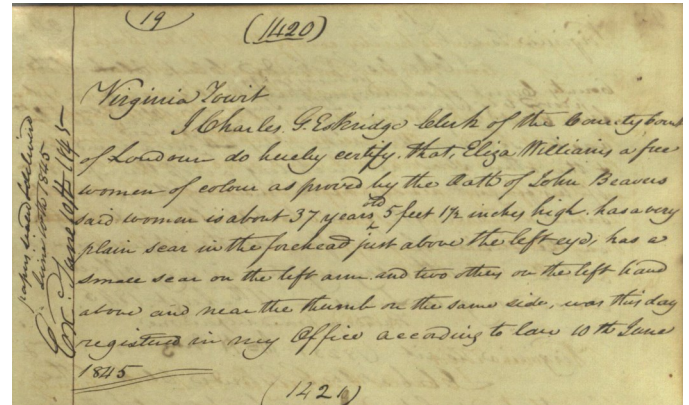 19
(1420)
Virginia Towit
I Charles. G. Eskridge Clerk of the County Court
of Loudoun do hereby certify. that, Eliza Williams a free
women of colour as proved by the Oath of John Beavers
said women is about 37 years old 5 feet 1½ inches high. has a very
plain scar in the forehead just above the left eye, has a
small scar on the left arm and two others on the left hand
above and near the thumb on the same side, was this day
registered in my Office according to law 10th June
1845
(1421)
papers issued & delivered
June 10th 1845
Ex. June 10th 1845